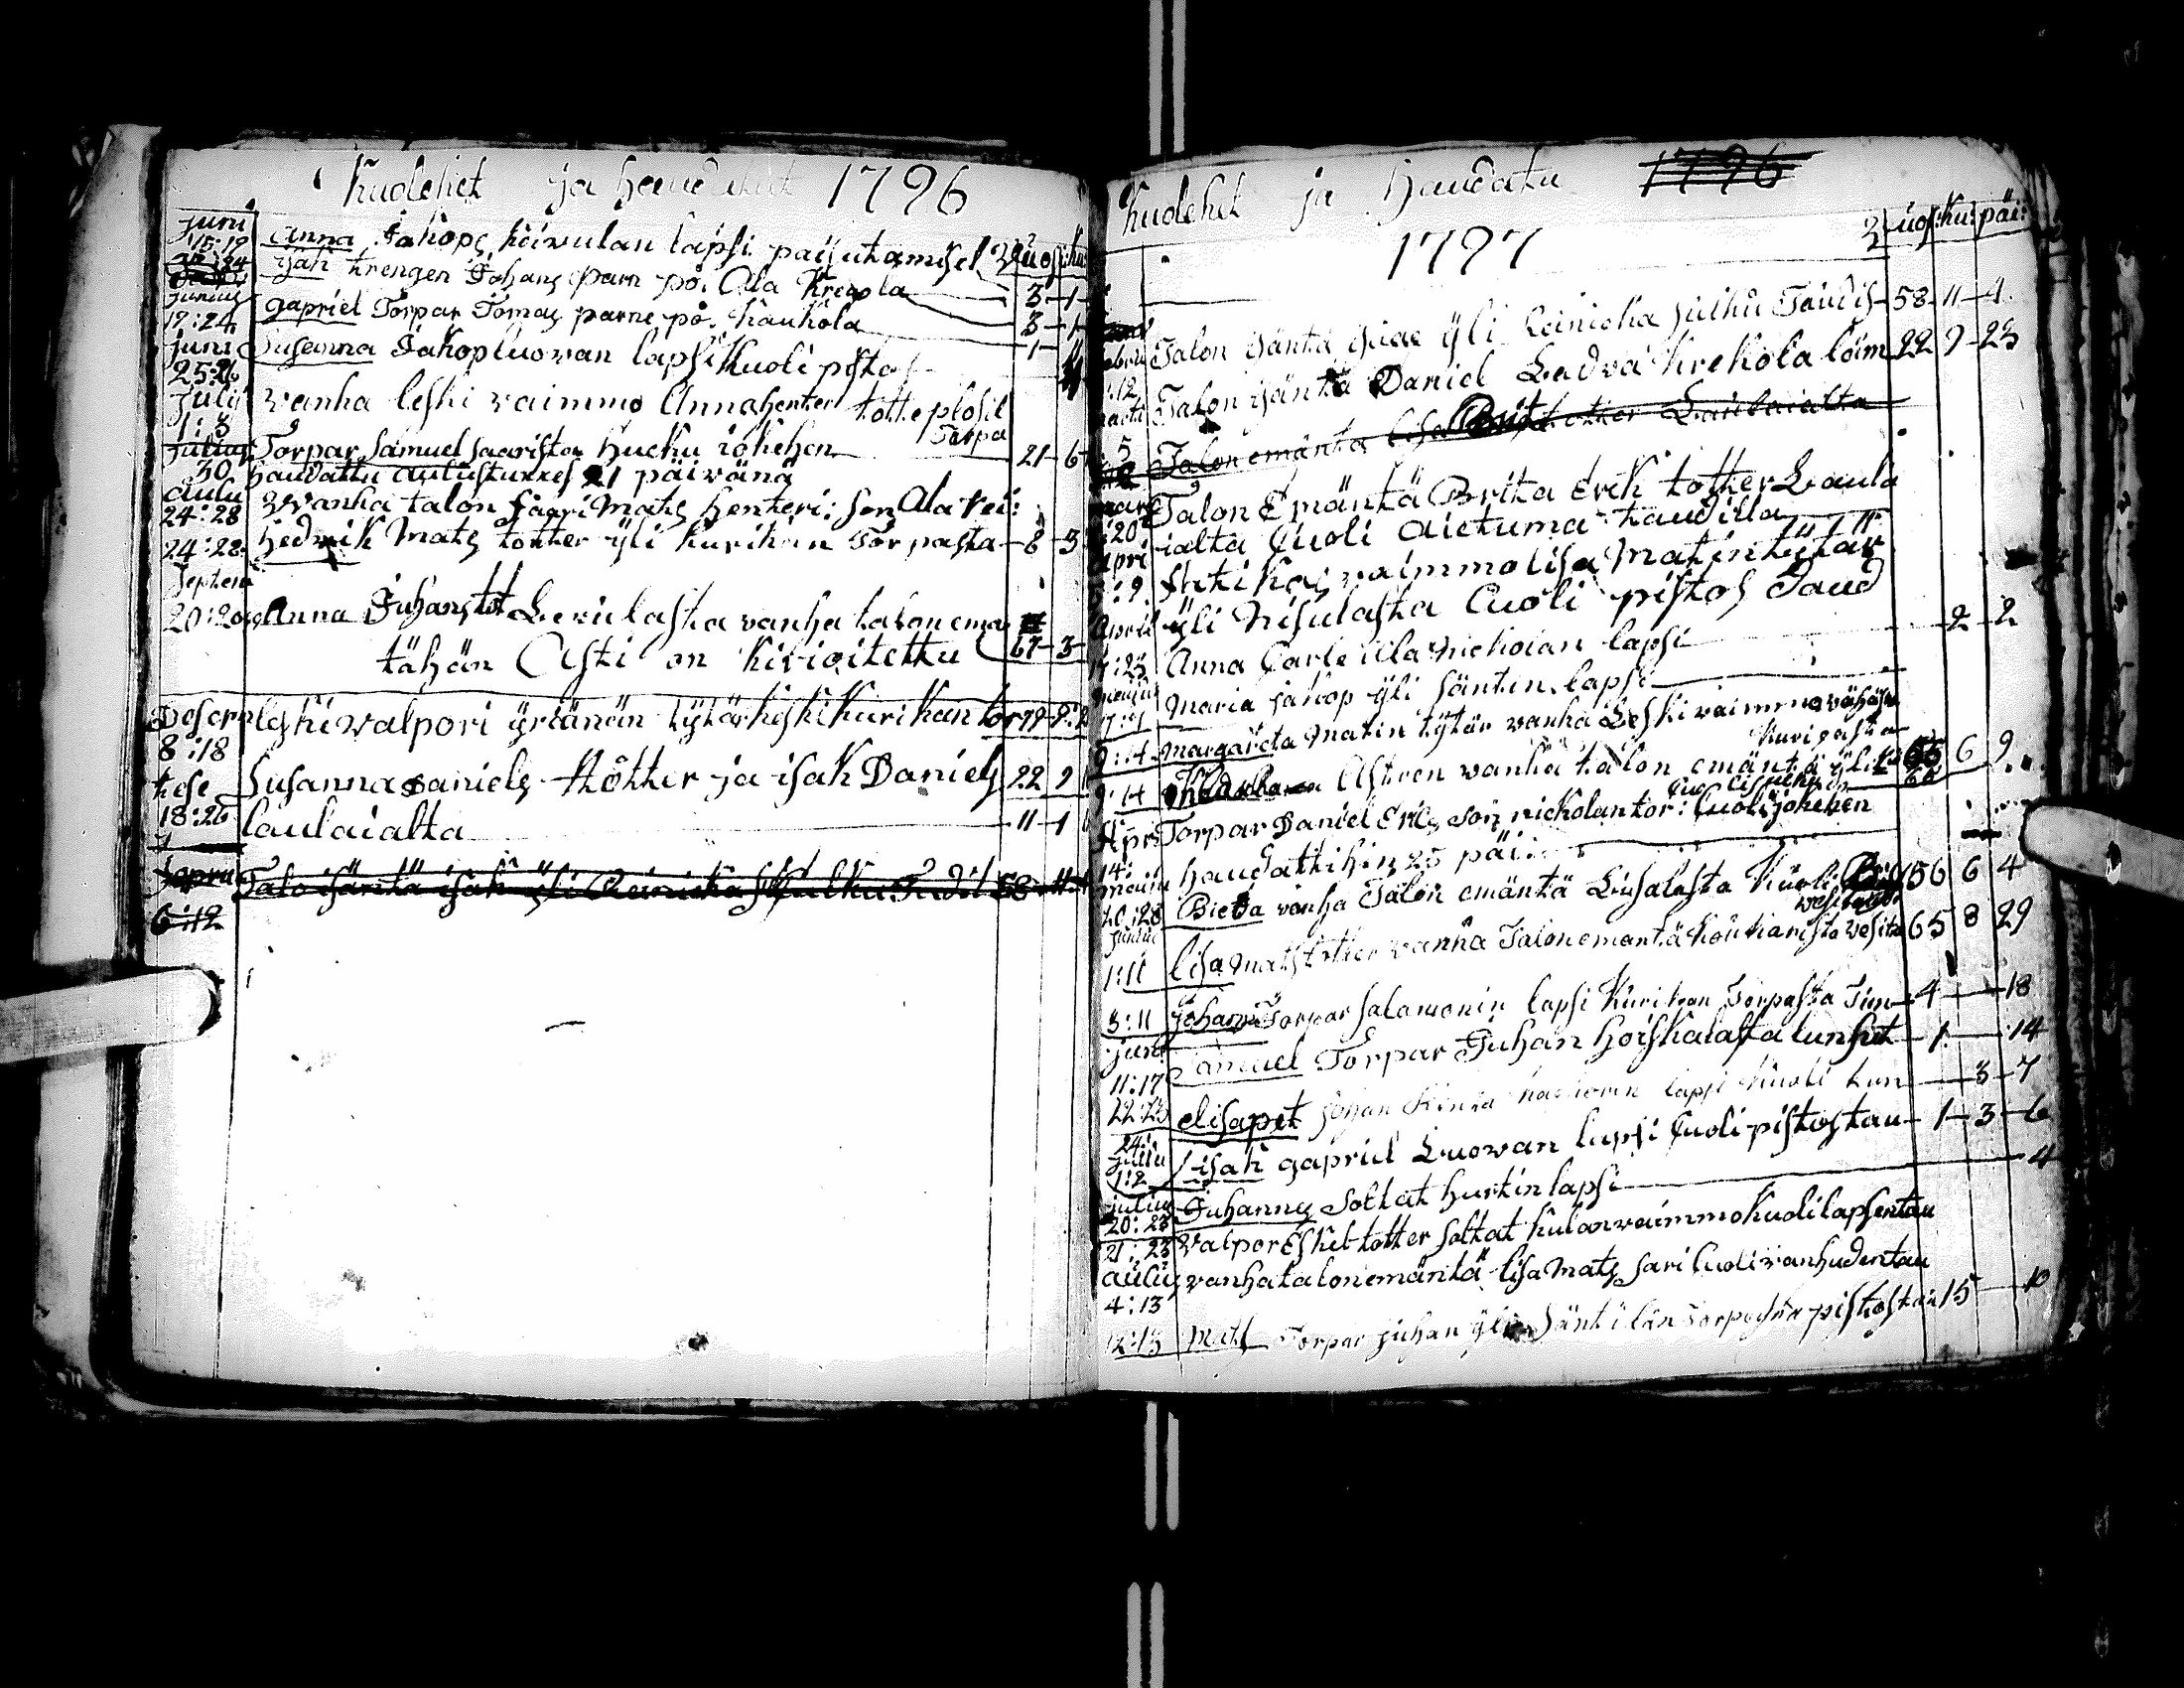 Kuolehet ja haudatut 1796
Juni
15:19 Anna Jakops köivulan lapsi paisutamisel uos: ku
isak Krengen Johans parn på Ala Krekola 3 1
Junius
17:24 gapriel Torpar Tomas parne på Kaukola 3 1
Juni Susanna Jakop Luowan lapsi Kuoli pistos 1
25:26
Julij vanha leski vaimmo Anna henter totter plosil
1:3 Torpa
Julius Torpar Samuel saaristos huchu jokehen 21 6
30 haudattu aulusturres 21 päivänä
aulu vanha talon saari Mats henteri: son Ala rei:
24:28
24:28 hedvik Mats totter yli Kurikan Torpasta 8 3
Septem
20:20 Anna Juhans tot Lerulasta vanha talon ema
67 3
tähän Asti on kirioitettu
Desem leski valpori yriänän tytär keski Kurikan tor 79 9
8:18
tese Susanna Daniels tötter ja isak Daniels 22 9
18:26 laulaialta 11 1
Talo isäntä isak yli Reinicka Sulku Tudil 58 11
6:12
Kuolehet ja haudatu 1796
1797 uos: ku: päi:
Talon isäntä isac yli Reinicka sulku Taudis 58 11 4
:12 Talon isäntä Daniel Ladva Krekola läm 22 9 23
5 Talon emäntä lisa Brit totter Laulaialta
Talon Emäntä Brita Erik totter Laula
:20 ialta Cuoli aietuma taudilla
Apri
:9 vaimmo lisa Matin tytär
April yli Nisulasta Cuoli pistos Taud
:23 Anna Carle illa nickoian lapsi 2 2
maria jakop yli säntin lapsi
9:14 margareta Matin tytär vanha Leski vaimmo vähäs
Kuripasta
9:14 Astren vanha talon emäntä yli 6 9
Apri Torpar Daniel Erics son nickolan tor: Cuoli jokehen
14: haudattihin 25 päi:
20:28 Bieta vanha Talon emäntä Liusalasta Kuoli 56 6 4
Junius
1:11 lisa mats totter vanha Talon emäntä koukarista vesita 65 8 29
3:11 Johann Torpar salamonin lapsi Kurikan Torpasta Tim 4 18
Juni Samuel Torpar Juhan hoiskalasta lunsut 1 14
11:17
22:23 elisapet Johan lapsi kuoli tun 3 7
24:
Juliu isak gapriel Luowan lapsi Cuoli pistostau 1 3 6
1:2
Julius Juhannes Soltat hurtin lapsi 4
20:23
21:23 Valpor Eskel totter soltat Kulan vaimmo kuoli lapsentau
aulus vanha talon emäntä lisa mats sari Cuoli vanhudentau
4:13
12:13 Mats Torpar juhan yli säntilän Torpasta pistostau 15 10